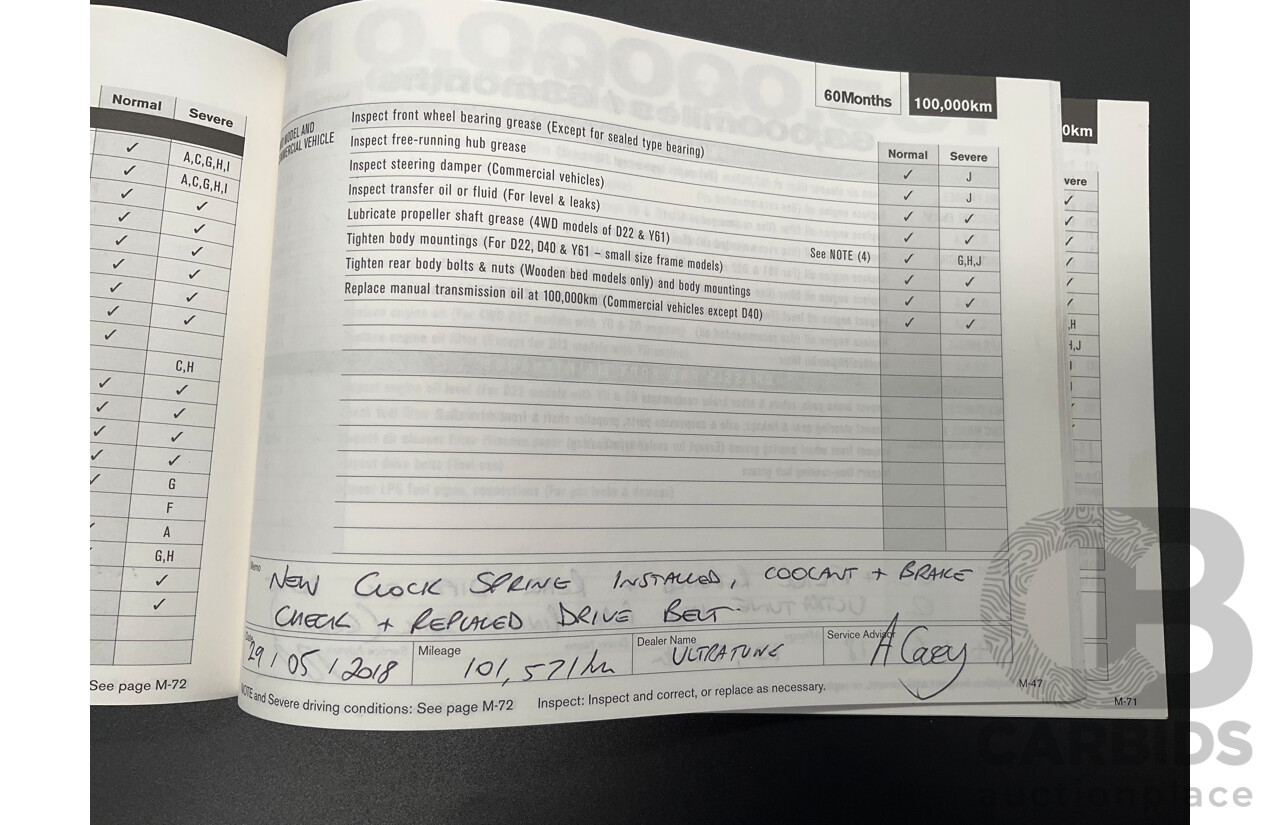 Normal Severe
✓ A,C,G,H,I
✓ A,C,G,H,I
✓ ✓
✓ ✓
✓ ✓
✓ ✓
✓ ✓
✓ ✓
✓
C,H
✓ ✓
✓ ✓
✓ ✓
✓ ✓
✓ G
F
A
G,H
✓
✓
See page M-72
60Months 100,000km
Normal Severe
MODEL AND
VEHICLE
Inspect front wheel bearing grease (Except for sealed type bearing) ✓ J
Inspect free-running hub grease ✓ J
Inspect steering damper (Commercial vehicles) ✓ ✓
Inspect transfer oil or fluid (For level & leaks) ✓ ✓
Lubricate propeller shaft grease (4WD models of D22 & Y61) See NOTE (4) ✓ G,H,J
Tighten body mountings (For D22, D40 & Y61 – small size frame models) ✓ ✓
Tighten rear body bolts & nuts (Wooden bed models only) and body mountings ✓ ✓
Replace manual transmission oil at 100,000km (Commercial vehicles except D40) ✓ ✓
Memo
NEW CLOCK SPRING INSTALLED, COOLANT + BRAKE
CHECK + REPLACED DRIVE BELT.
Date 29/05/2018 Mileage 101,571km Dealer Name ULTRATUNE Service Advisor A Casey
NOTE and Severe driving conditions: See page M-72 Inspect: Inspect and correct, or replace as necessary. M-47
0km
vere
,H
H,J
M-71
CB
CARBIDS
auctionplace